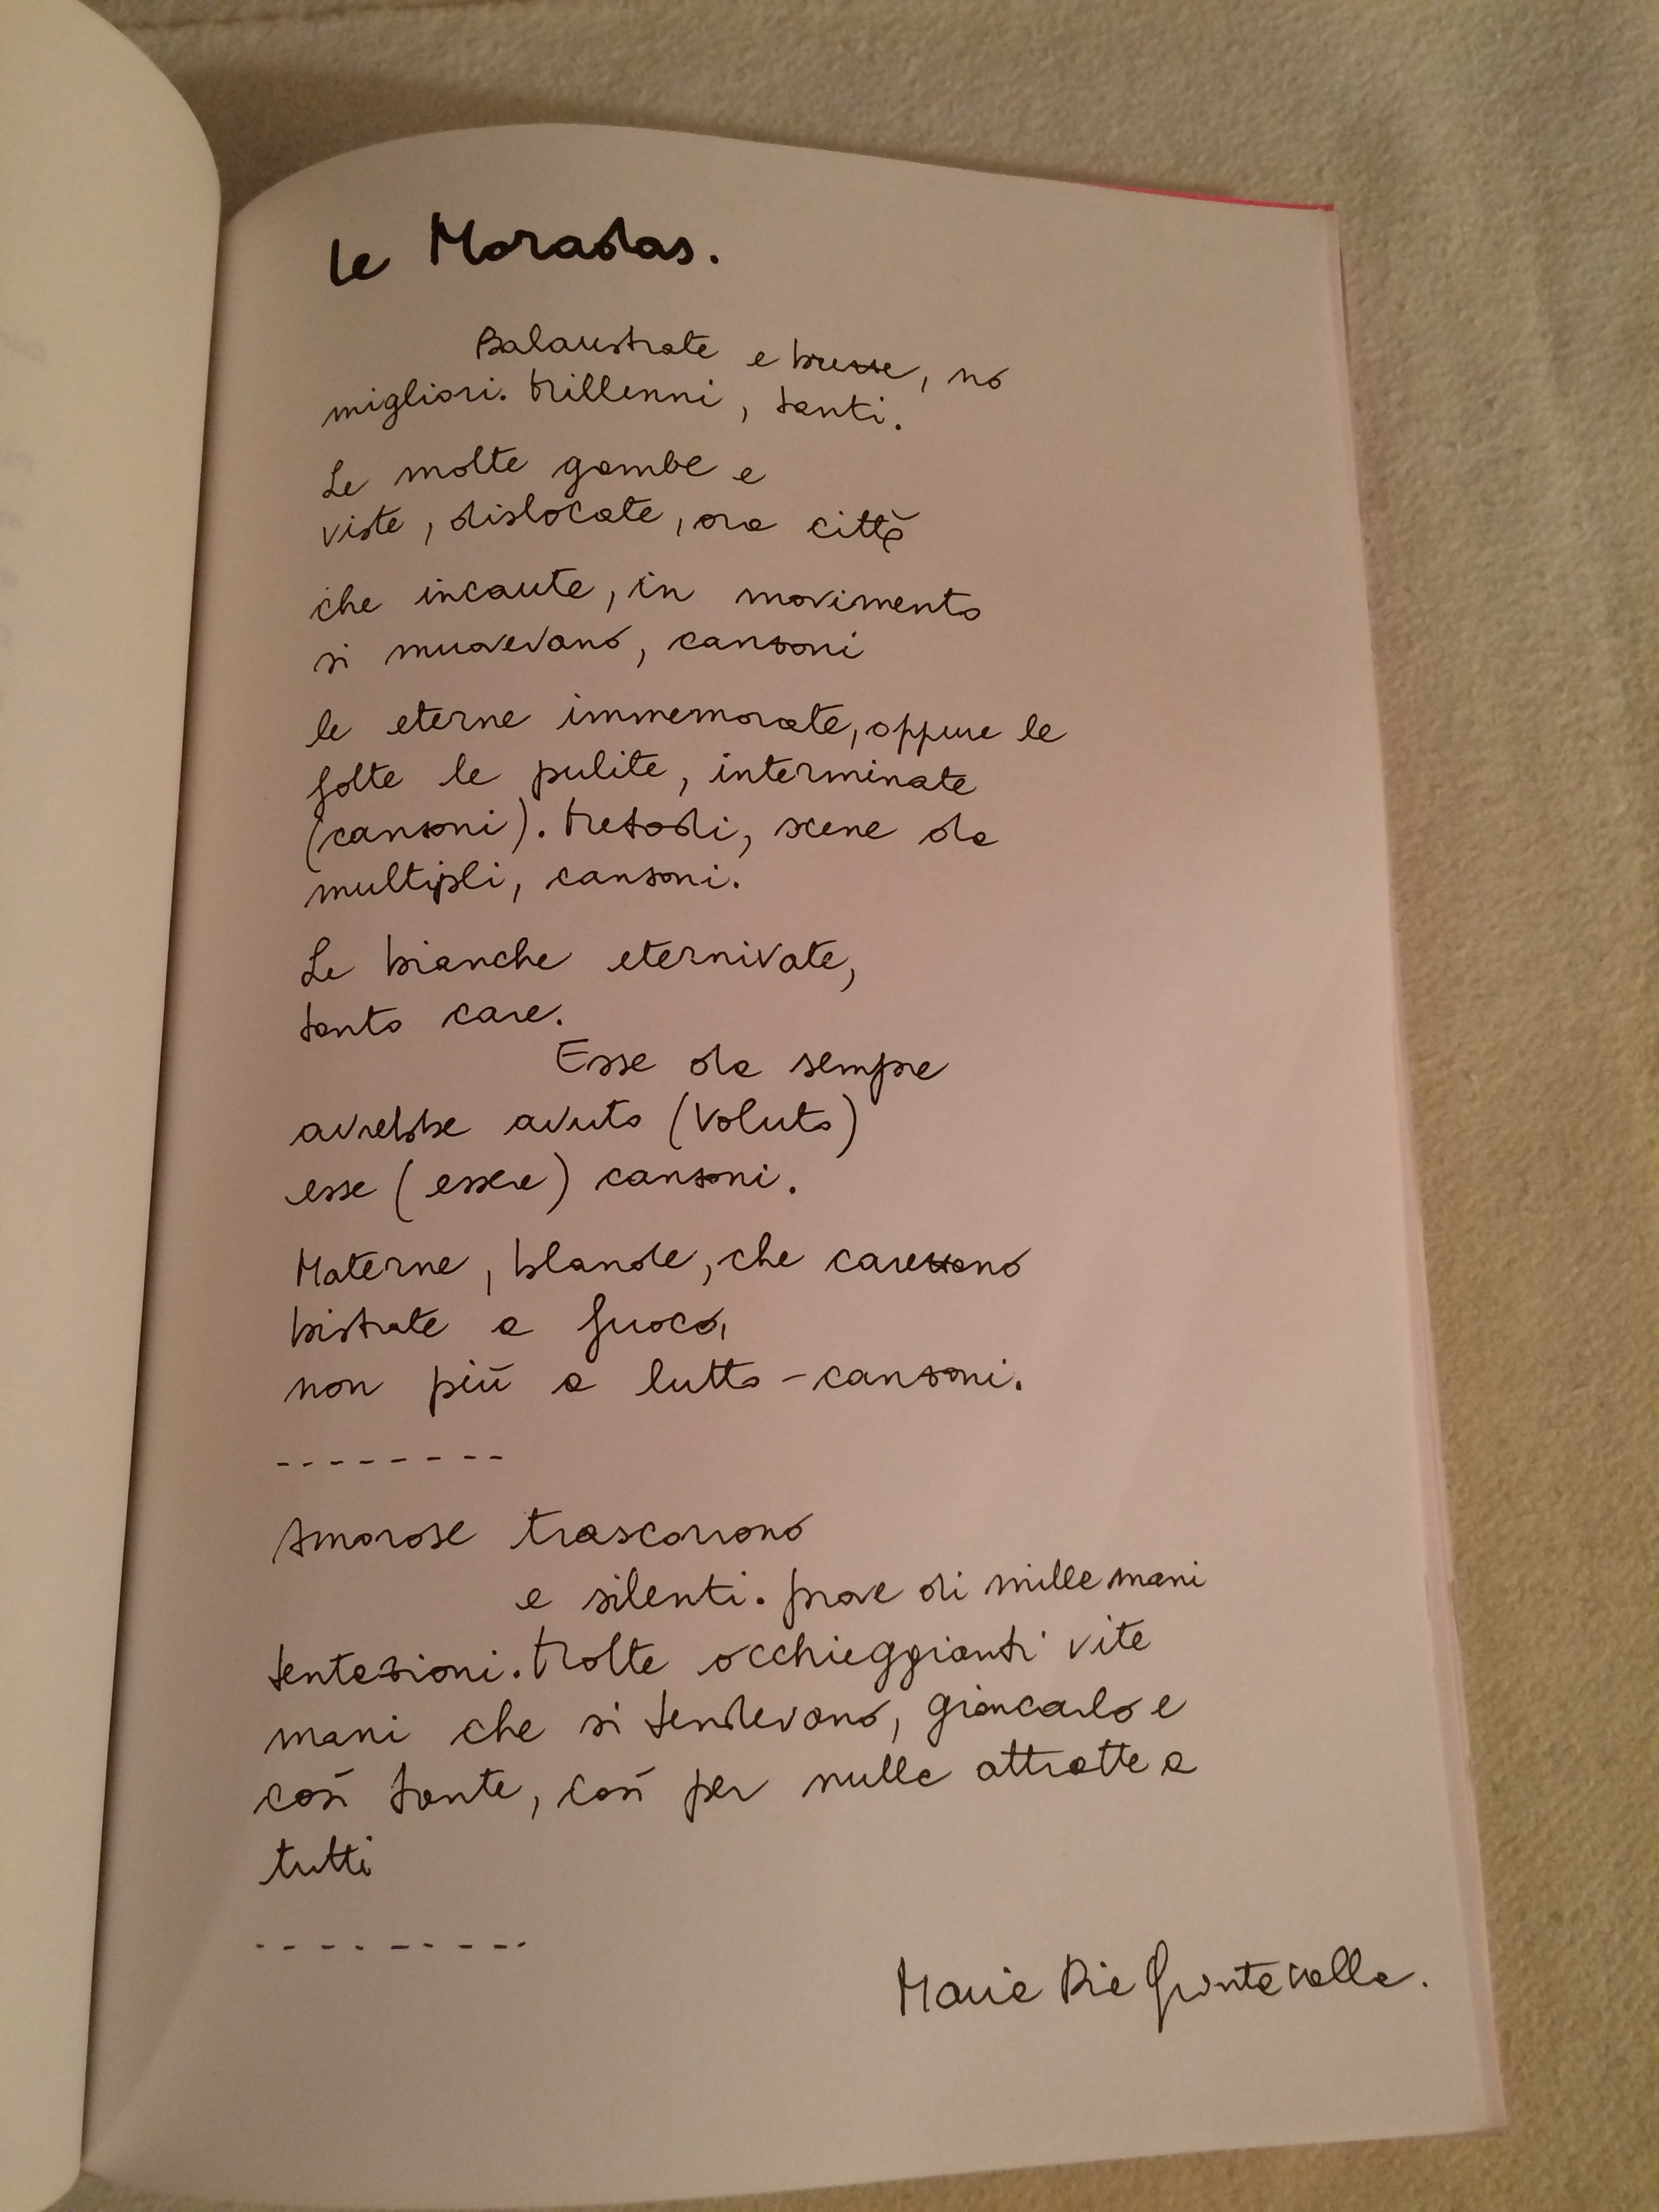 le Moradas.
Balaustrate e brezze, no
migliori. Millenni, tanti.
Le molte gambe e
viste, dislocate, ora città
che incaute, in movimento
si muovevano, canzoni
le eterne immemorate, oppure le
folte le pulite, interminate
(canzoni). Metodi, scene da
multipli, canzoni.
Le bianche eternivate,
tanto care.
Esse da sempre
avrebbe avuto (voluto)
esse (essere) canzoni.
Materne, blande, che carezzano
bistrate a fuoco,
non più a lutto - canzoni.
--------
Amorose trascorrono
e silenti. prove di mille mani
tentazioni. Molte occhieggianti vite
mani che si tendevano, giancarlo e
così tante, così per nulla attratte a
tutti
---------
Maria Pia Quintavalla.